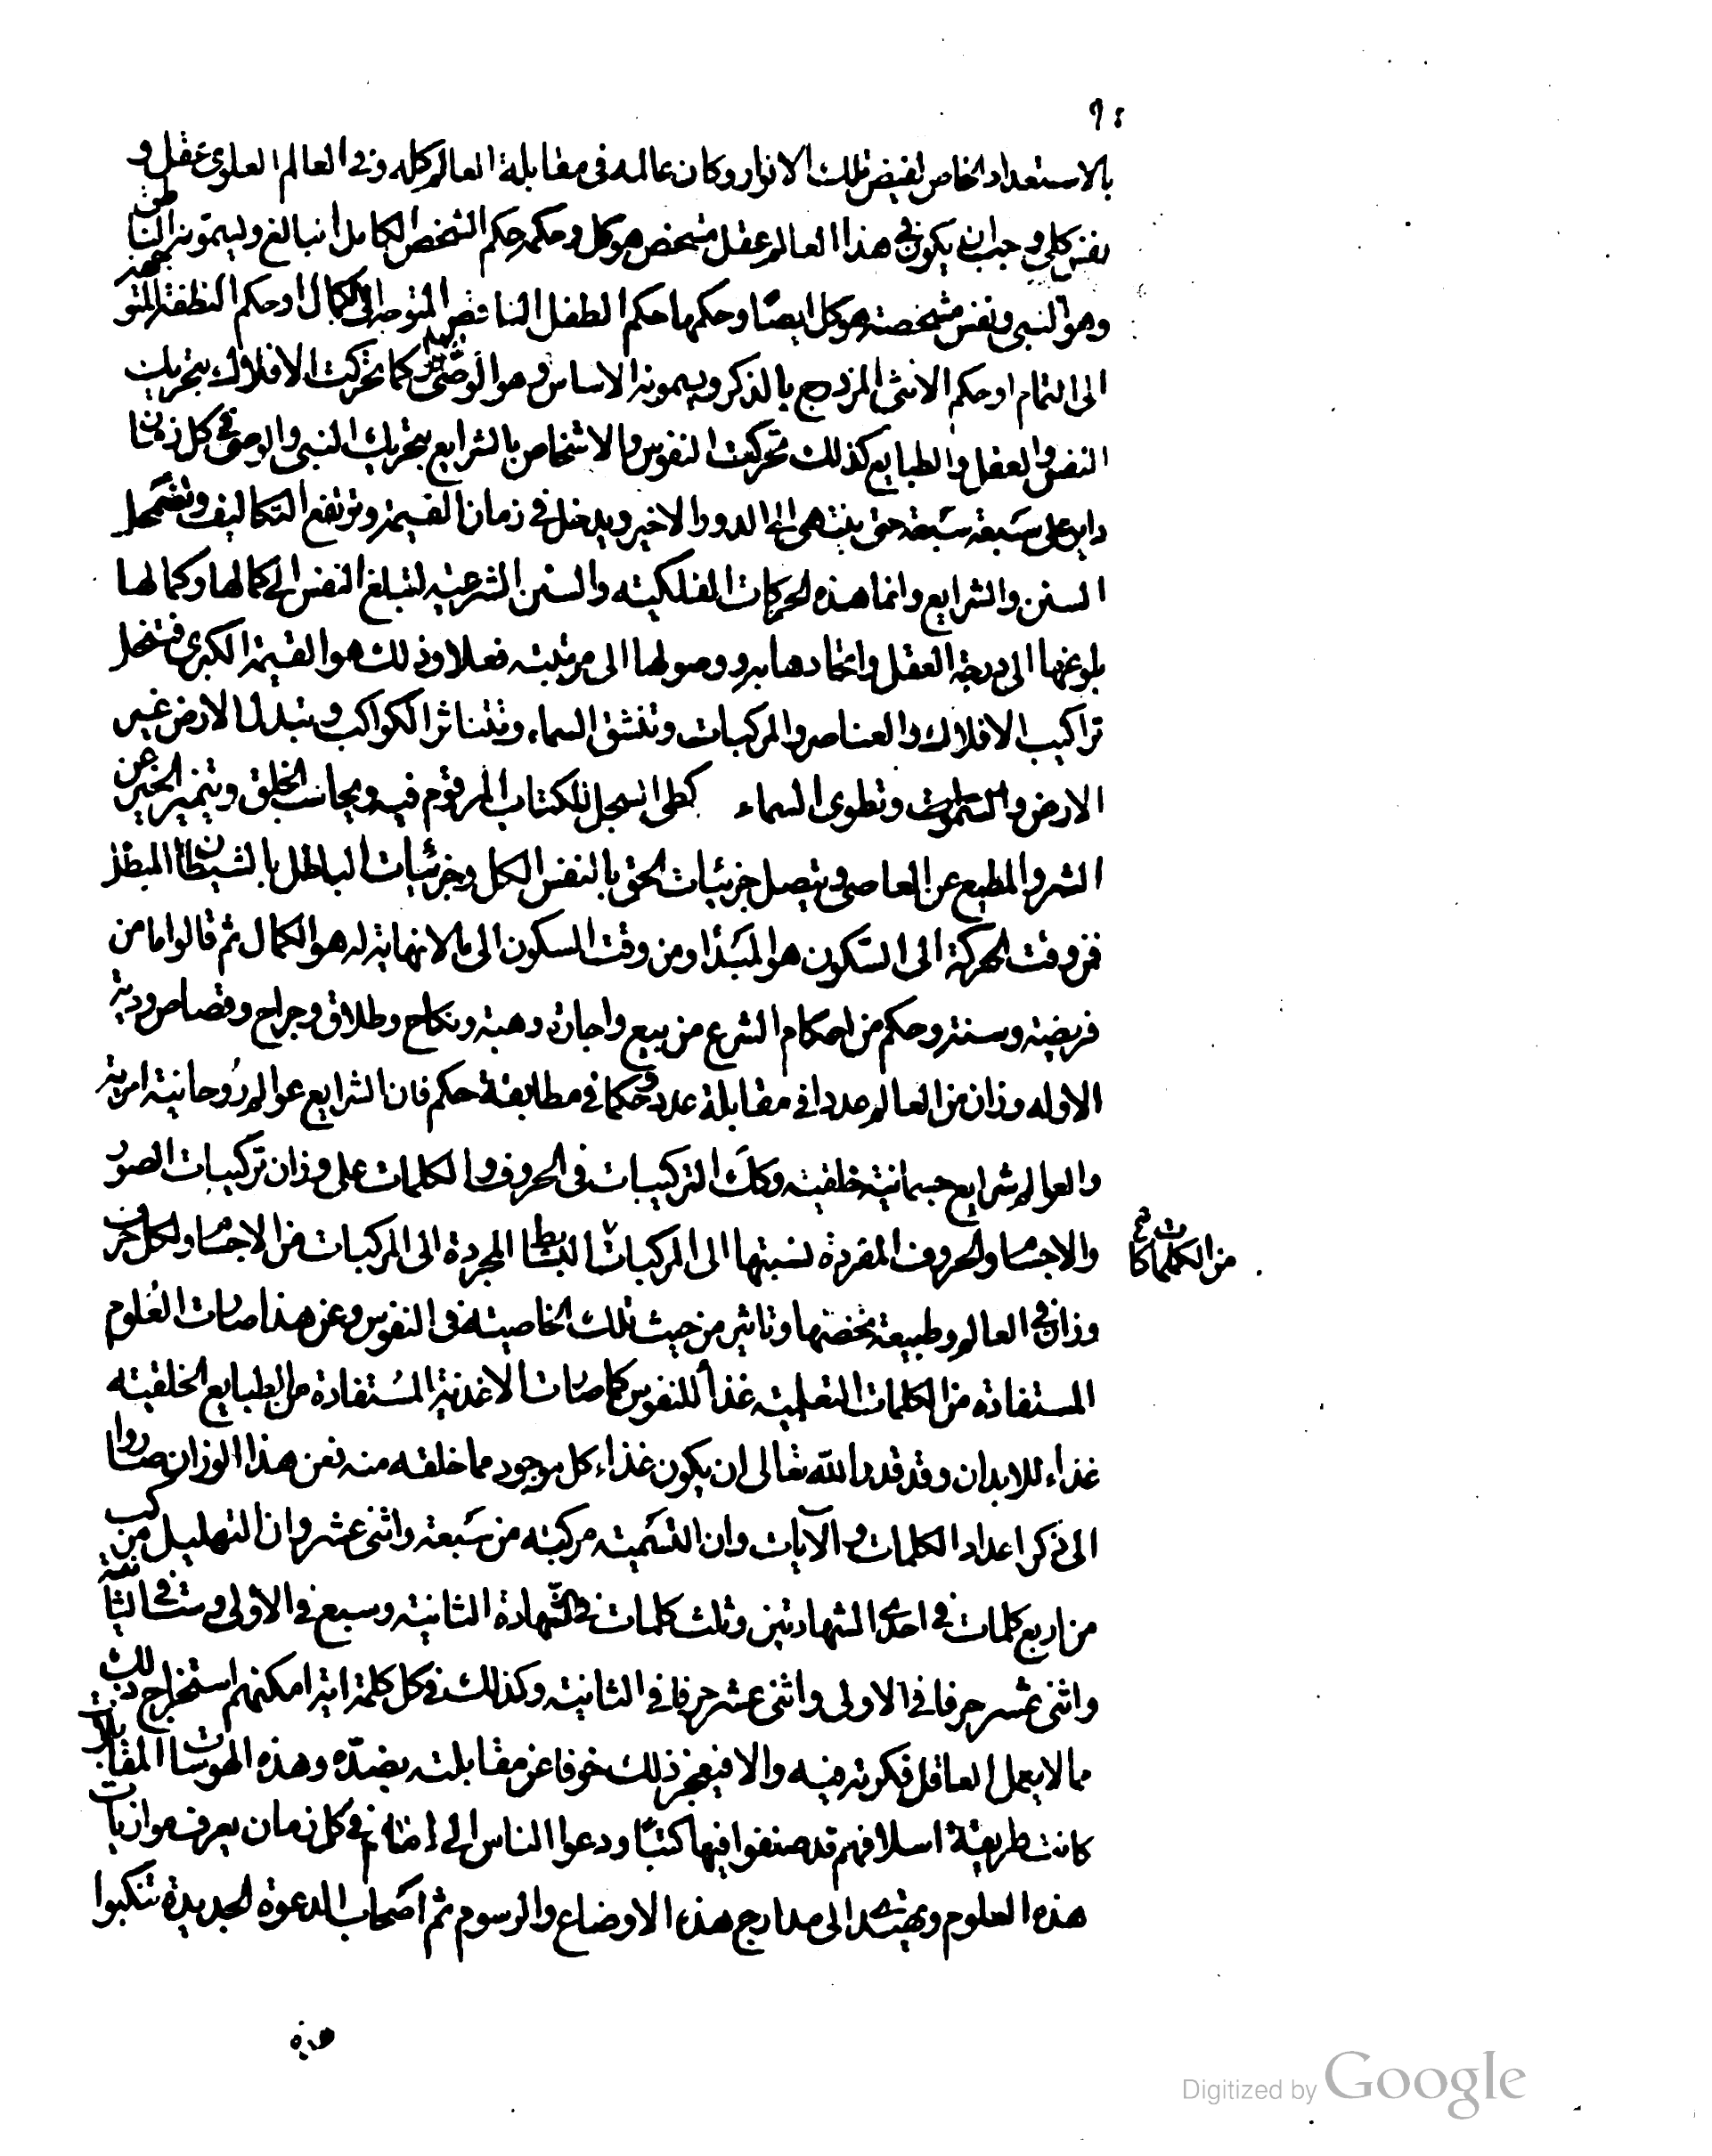 ٩٤
بالاستعداد الخاص لفيض تلك الانوار وكان عالمه فى مقابلة العالم كله وفى العالم العلوى عقل و
نفس كلى وجب ان يكون فى هذا العالم عقل مشخص هو كل وحكمه حكم الشخص الكامل البالغ ويسمونه الناطق
وهو النبى ونفس مشخصة هو كل ايضًا وحكمها حكم الطفل الناقص المتوجه الى الكمال او حكم النطفة المتوجهة
الى التمام او حكم الانثى المزدوج بالذكر ويسمونه الاساس وهو الوصّى كما تحركت الافلاك بتحريك
النفس والعقل والطبايع كذلك تحركت النفوس والاشخاص بالشرايع بتحريك النبى والوصى فى كل زمان
داير على سَبعة سَبعة حتى ينتهى الى الدور الاخير ويدخل فى زمان القيمة وترتفع التكاليف وتضمحل
السنن والشرايع وانما هذه الحركات الفلكيته والسنن الشرعية لتبلغ النفس الى كمالها وكمالها
بلوغها الى درجة العقل واتحادها به ووصولها الى مرتبته فعلا وذلك هو القيمة الكبرى فتنحل
تراكيب الافلاك والعناصر والمركبات وتنشق السماء وتتناثر الكواكب وتبدل الارض غير
الارض والسّموات وتطوى السماء كطى السجل للكتاب المرقوم فيه ويحاسب الخلق ويتميز الخير عن
الشر والمطيع عن العاصى ويتصل جزئيات الحق بالنفس الكل وجزئيات الباطل بالشيطان المبطل
فمن وقت الحركة الى السّكون هو المبَدا ومن وقت السكون الى ما لا نهاية له هو الكمال ثم قالوا ما من
فريضة وسنة وحكم من احكام الشرع من بيع واجارة وهبة ونكاح وطلاق وجراح وقصاص ودية
الا وله وزان من العالم عددا فى مقابلة عدد وحكما فى مطابقة حكم فان الشرايع عوالم رُوحانية امرية
والعوالم شرايع جسمانية خلقية وكك التركيبات فى الحروف والكلمات على وزان تركيبات الصور
والاجسام والحروف المفردة نسبتها الى المركبات البسائط المجردة الى المركبات من الاجسام ولكل حرف
من الكلمات كا
وزان فى العالم وطبيعة يخصها وتاثير من حيث تلك الخاصيته فى النفوس وعن هذا صارت العُلوم
المستفادة من الكلمات التعلمية غذأ للنفوس كما صارت الاغذية المسُتفادة من الطبايع الخلقيته
غذاء للابدان وقد قدر الله تعالى ان يكون غذاء كل موجود مما خلقه منه فعن هذا الوزان صاروا
الى ذكر اعداد الكلمات والآيات وان التسَمية مركبة من سَبعة واثنى عشر وان التهليل مركب
من اربع كلمات فى احدى الشهادتين وثلث كلمات فى الشّهادة الثانية وسبع فى الاولى وست فى الثانية
واثنى عشر حرفا فى الاولى واثنى عشر حرفا فى الثانية وكذلك فى كل كلمة اية امكنهم استخراج ذلك
مما لا يعمل العاقل فكرته فيه والا فيعجز ذلك خوفا عن مقابلته بضدّه وهذه المقابلات
كانت طريقة اسلافهم قد صنفوا فيها كتبًا ودعوا الناس الى امام فى كل زمان يعرف موازنات
هذه العلوم ويهتدى الى مدارج هذه الاوضاع والرسوم ثم اصَحاب الدعوة الجديدة تنكبوا
هذه
Digitized by Google